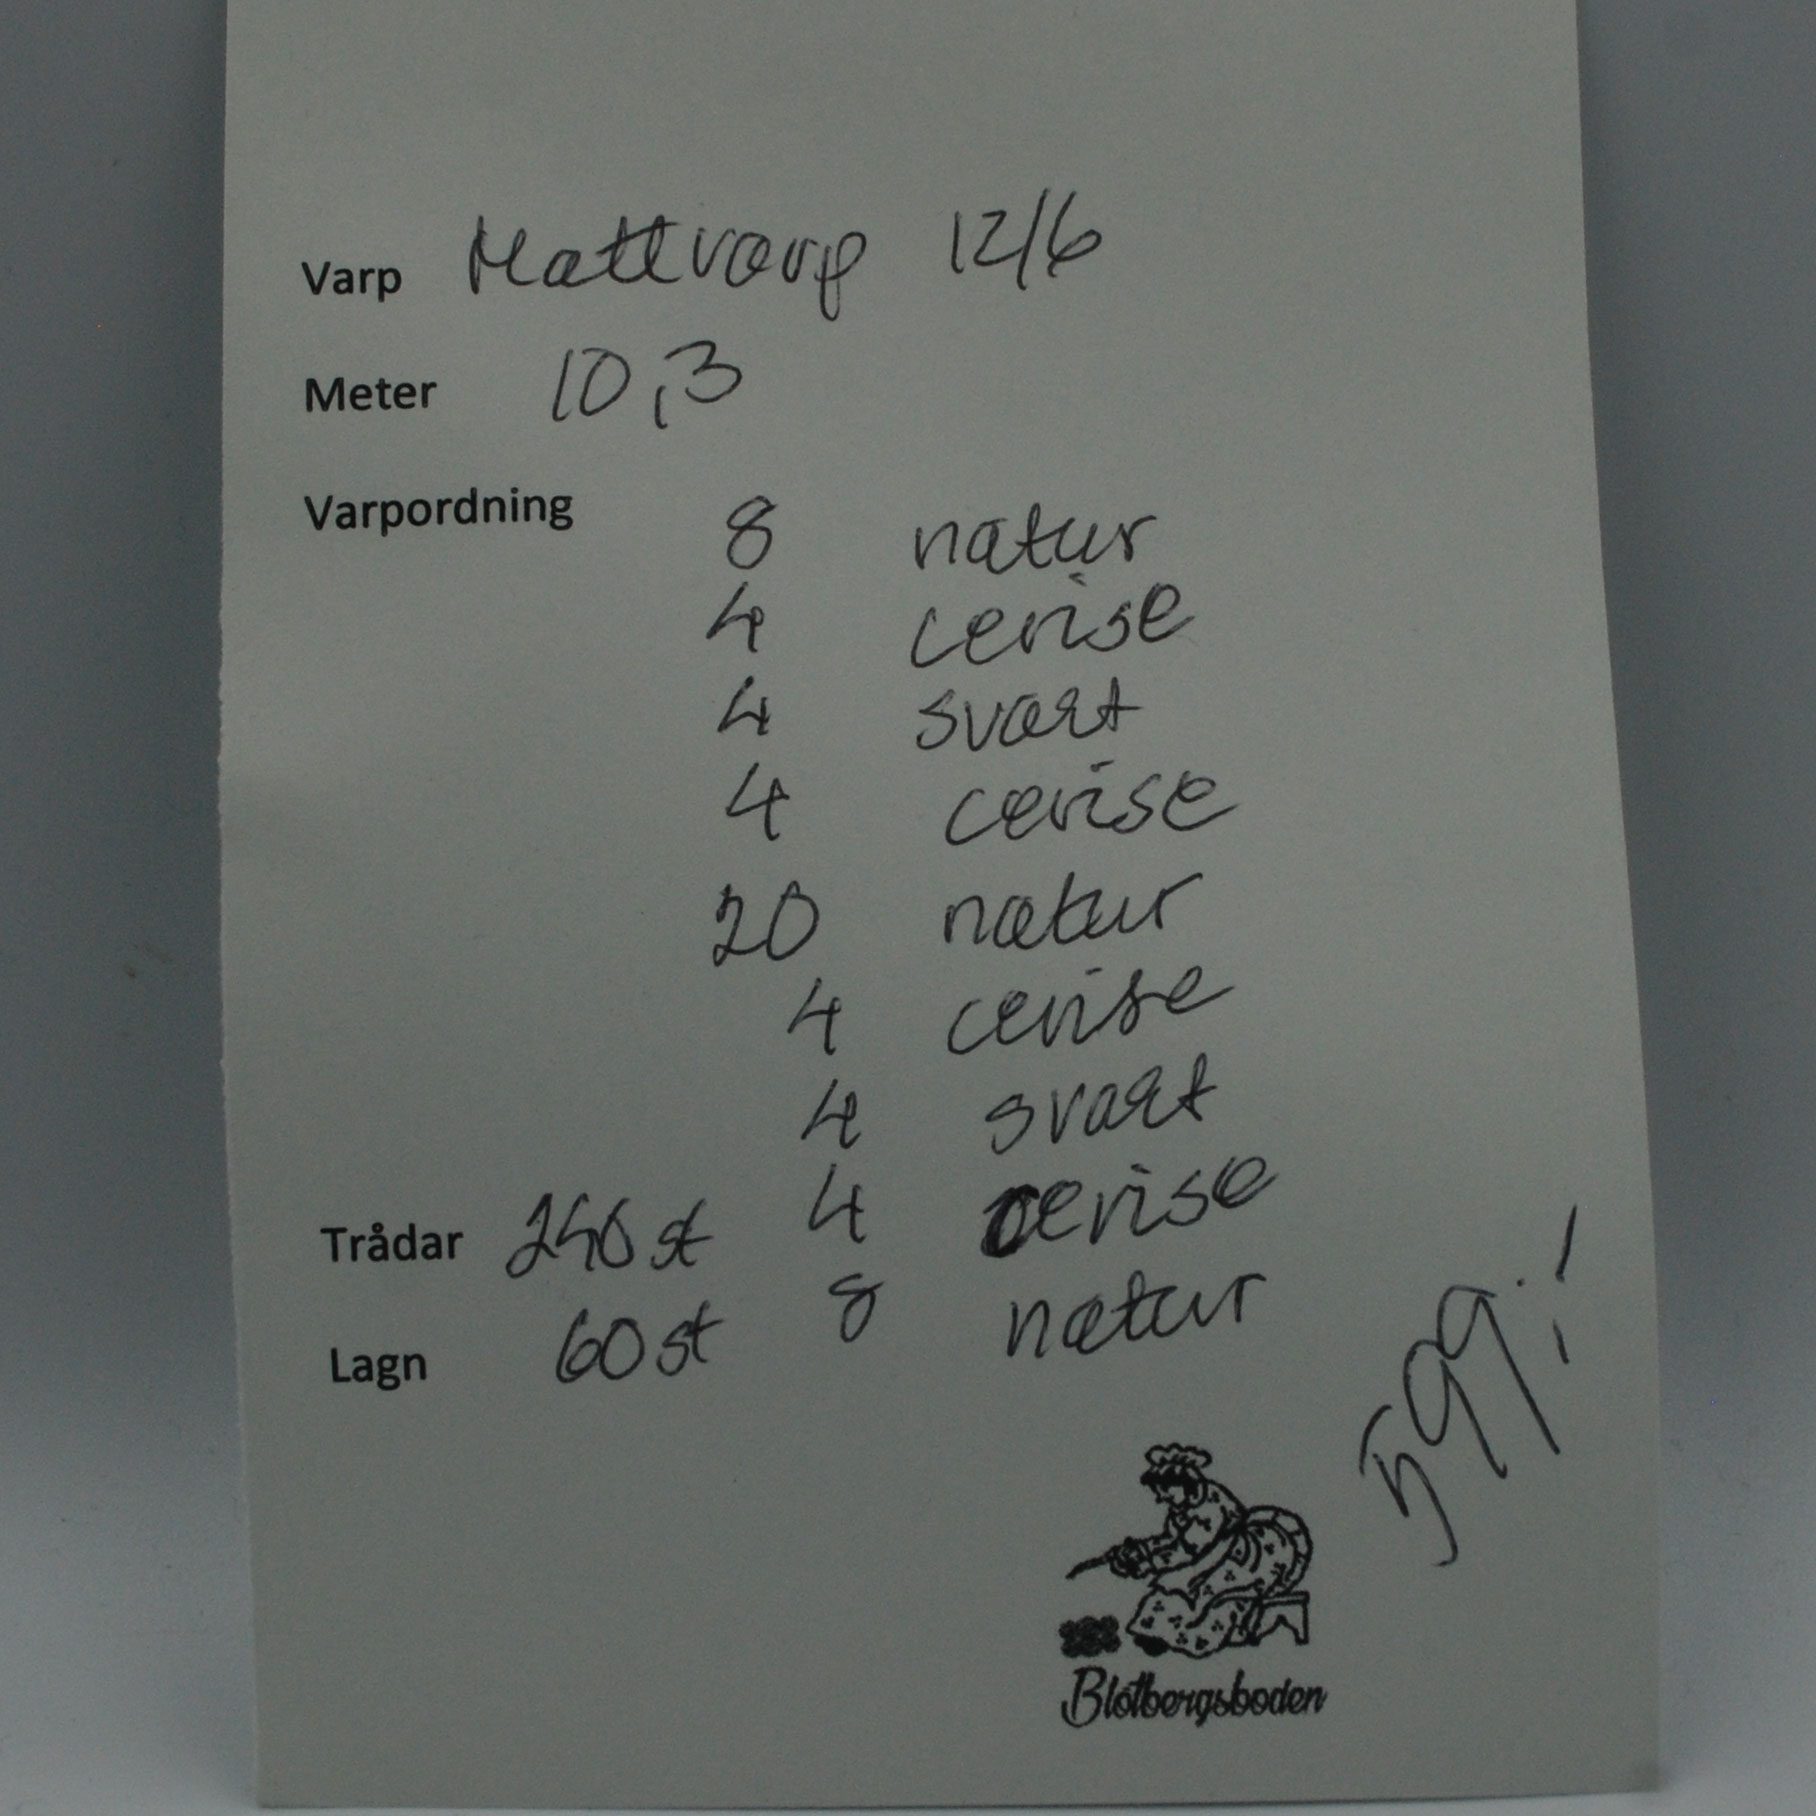 Varp Mattvarp 12/6
Meter 10,3
Varpordning
8 natur
4 cerise
4 svart
4 cerise
20 natur
4 cerise
4 svart
4 cerise
8 natur
Trådar 240 st
Lagn 60 st
599:-
Blötbergsboden